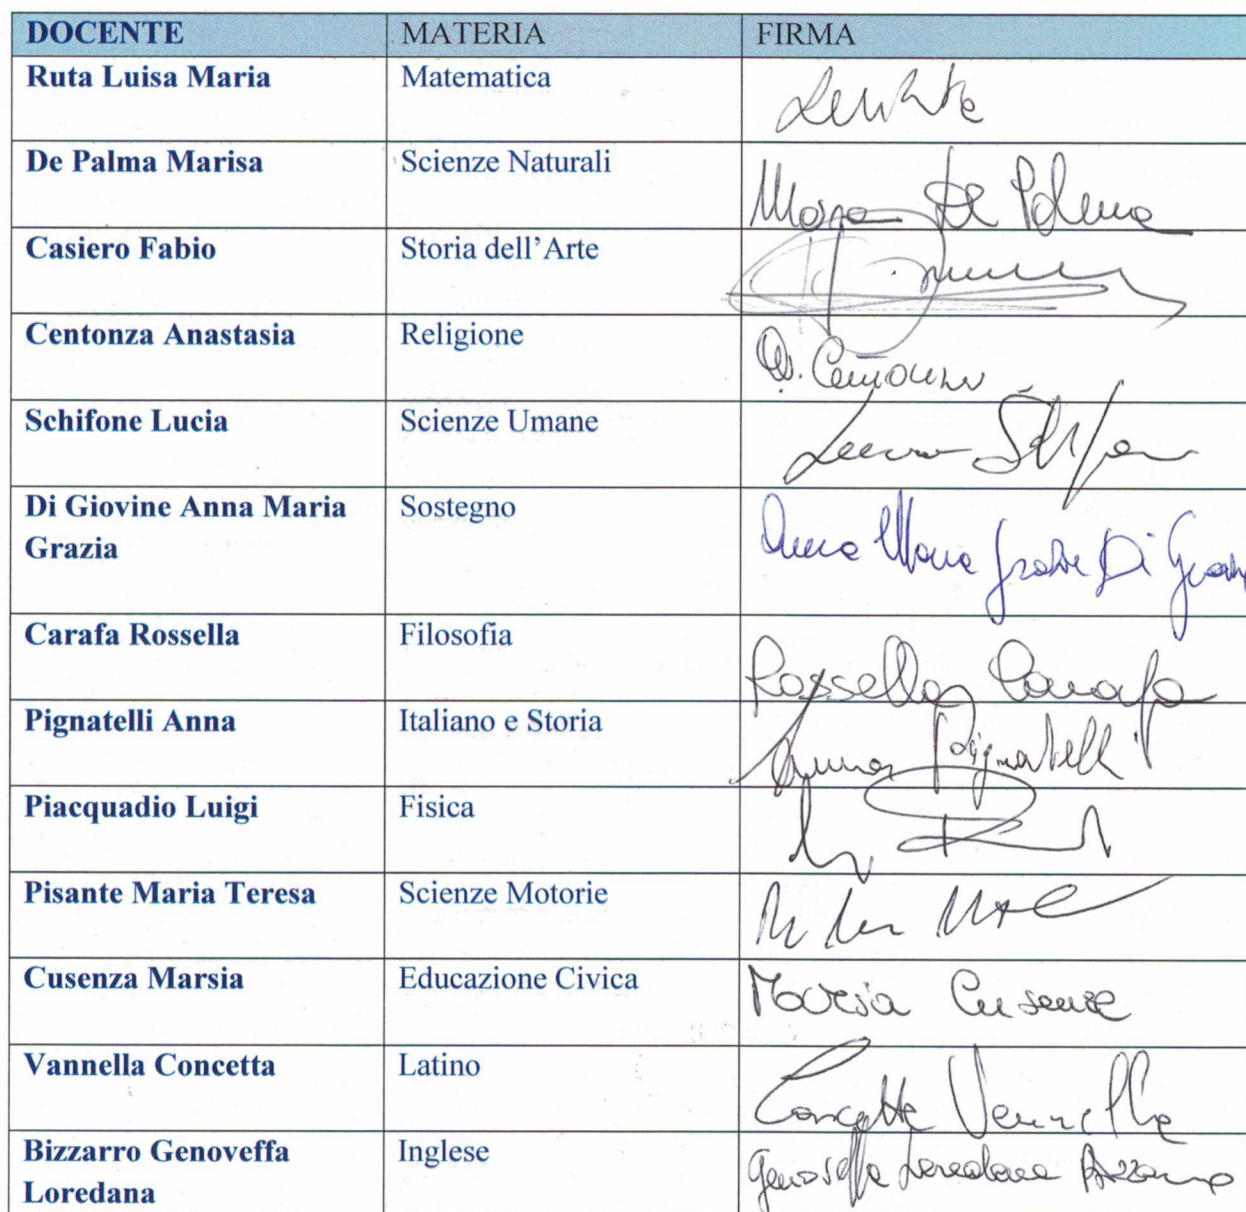 DOCENTE MATERIA FIRMA
Ruta Luisa Maria Matematica
De Palma Marisa Scienze Naturali De Palma
Casiero Fabio Storia dell'Arte
Centonza Anastasia Religione
Schifone Lucia Scienze Umane
Di Giovine Anna Maria Sostegno Anna Maria Grazia Di
Grazia
Carafa Rossella Filosofia Rossella Carafa
Pignatelli Anna Italiano e Storia Anna Pignatelli
Piacquadio Luigi Fisica
Pisante Maria Teresa Scienze Motorie
Cusenza Marsia Educazione Civica Marsia Cusenza
Vannella Concetta Latino Concetta Vannella
Bizzarro Genoveffa Inglese Genoveffa Loredana Bizzarro
Loredana